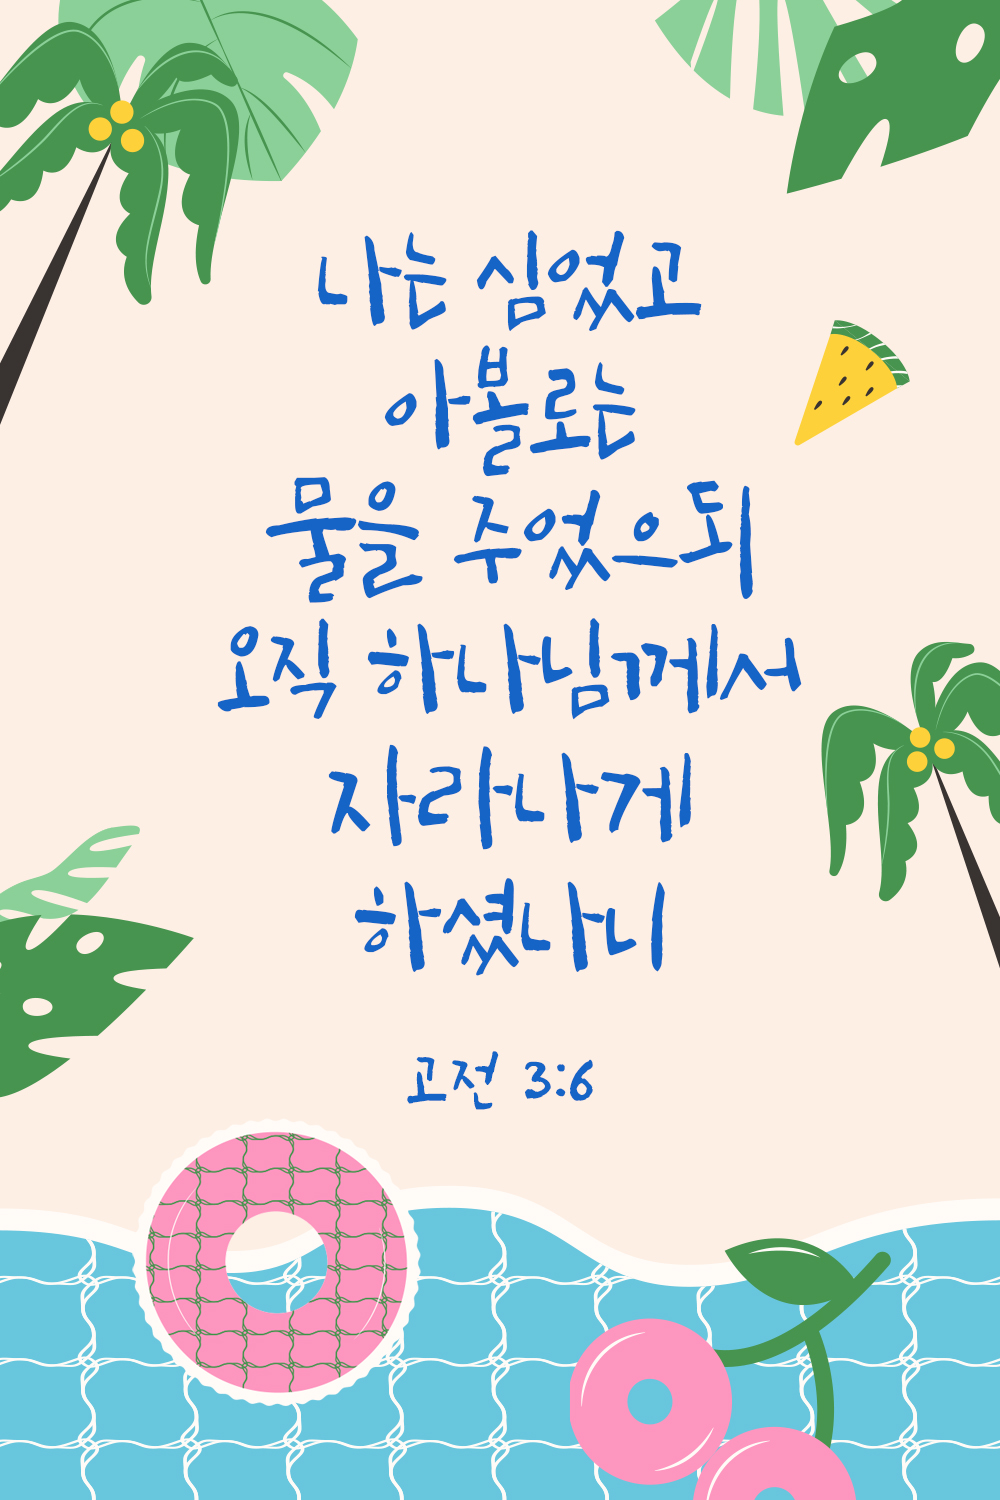 나는 심었고
아볼로는
물을 주었으되
오직 하나님께서
자라나게
하셨나니
고전 3:6